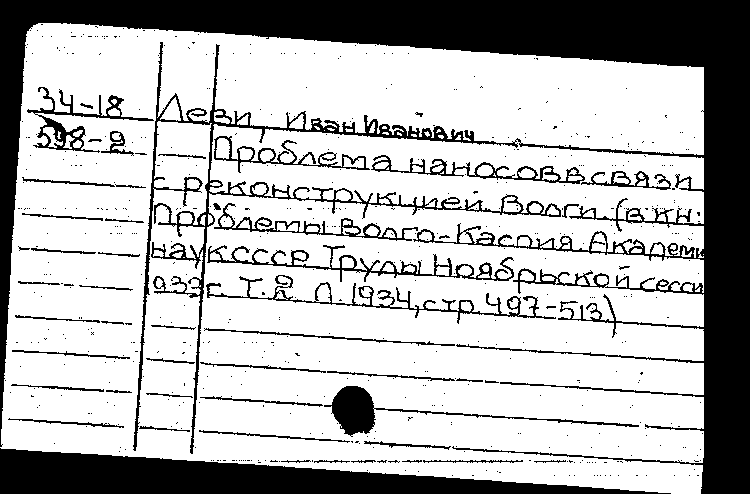 34-18 Леви, Иван Иванович
598-2 Проблема наносов в связи
с реконструкцией Волги. (в кн:
Проблемы Волго-Каспия. Академи
наук СССР Труды Ноябрьской сесси
1933 г. Т. 2 Л. 1934, стр. 497-513)